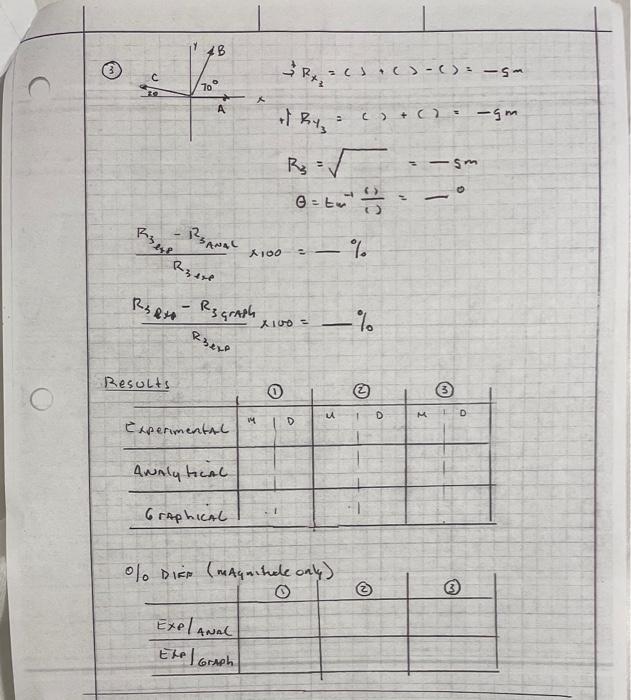 ③
Y
B
C
20
70°
X
A
→+ Rx₃ = ( ) + ( ) - ( ) = — gm
+↑ Ry₃ = ( ) + ( ) = — gm
R₃ = √ = — gm
θ = tan⁻¹ ( )/( ) = — °
R₃exp - R₃ANAL / R₃exp x100 = — %
R₃exp - R₃graph / R₃exp x100 = — %
Results
① ② ③
Experimental M D M D M D
Analytical
Graphical
% Diff (magnitude only)
① ② ③
Exp/ANAL
Exp/Graph